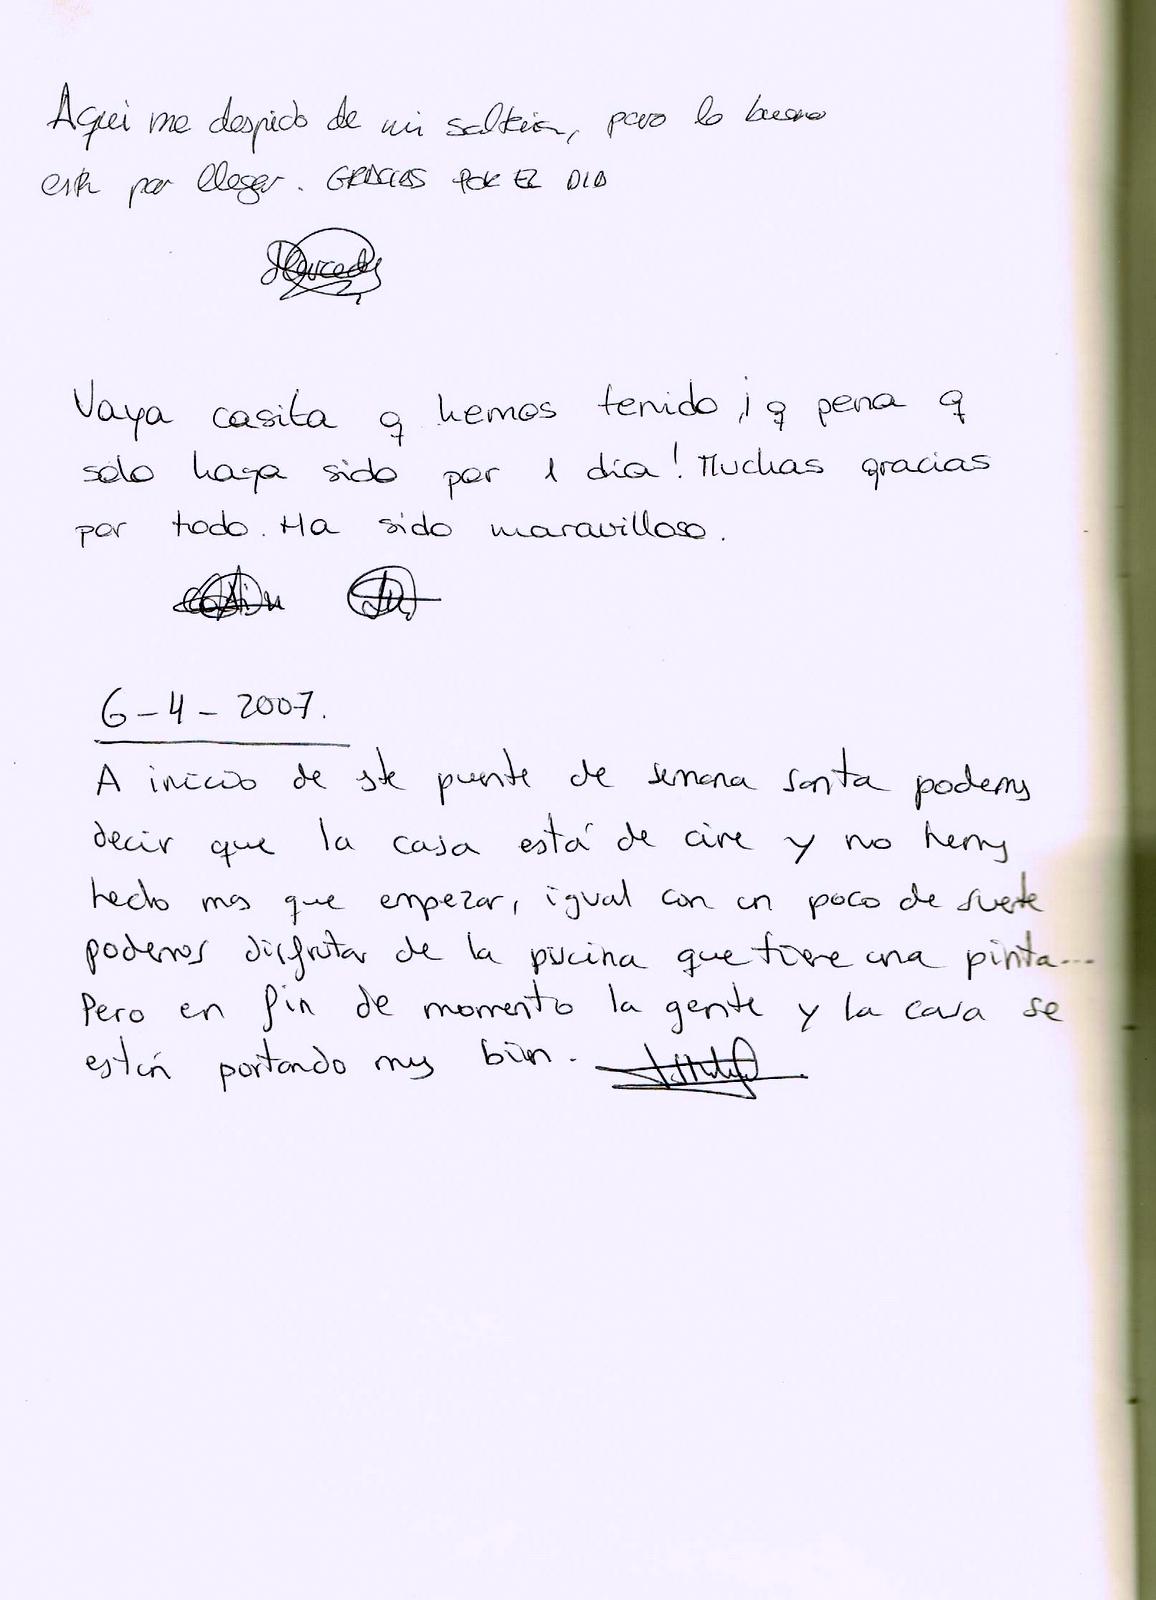 Aqui me despido de mi solteria, pero lo bueno
está por llegar. GRACIAS POR EL DIA
Mercedes
Vaya casita q hemos tenido ¡q pena q
solo haya sido por 1 día! Muchas gracias
por todo. Ha sido maravilloso.
6-4-2007.
A inicio de ste puente de semana santa podemos
decir que la casa está de cine y no hemos
hecho mas que empezar, igual con un poco de suerte
podemos disfrutar de la piscina que tiene una pinta...
Pero en fin de momento la gente y la casa se
están portando muy bien.